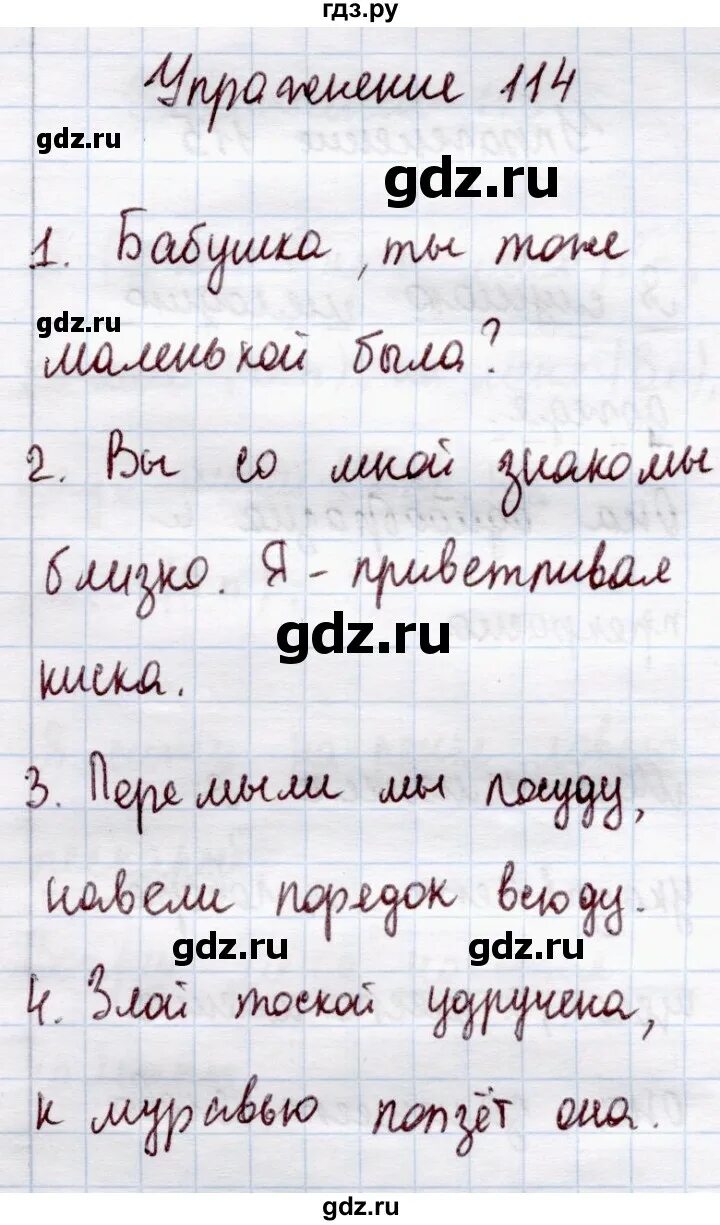 гдз.ру
Упражнение 114
gdz.ru
gdz.ru
1. Бабушка, ты тоже
gdz.ru
маленькой была?
2. Вы со мной знакомы
близко. Я - приветливая
gdz.ru
киска.
3. Перемыли мы посуду,
навели порядок всюду.
gdz.ru gdz.ru
4. Злой тоской удручена,
к муравью ползёт она.
gdz.ru